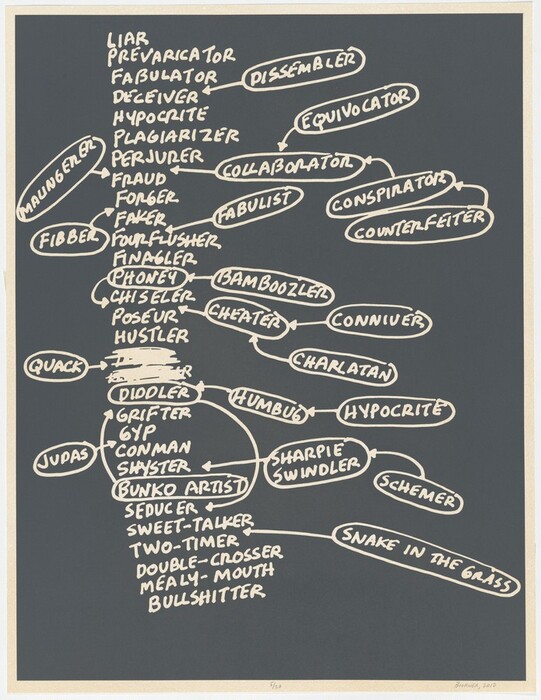 LIAR
PREVARICATOR
FABULATOR
DISSEMBLER
DECEIVER
HYPOCRITE
EQUIVOCATOR
PLAGIARIZER
PERJURER
COLLABORATOR
MALINGERER
FRAUD
CONSPIRATOR
FORGER
FABULIST
FAKER
COUNTERFEITER
FIBBER
FOURFLUSHER
FINAGLER
PHONEY
BAMBOOZLER
CHISELER
POSEUR
CHEATER
CONNIVER
HUSTLER
QUACK
CHARLATAN
DIDDLER
HUMBUG
HYPOCRITE
GRIFTER
GYP
CONMAN
JUDAS
SHARPIE
SWINDLER
SHYSTER
SCHEMER
BUNKO ARTIST
SEDUCER
SWEET-TALKER
SNAKE IN THE GRASS
TWO-TIMER
DOUBLE-CROSSER
MEALY-MOUTH
BULLSHITTER